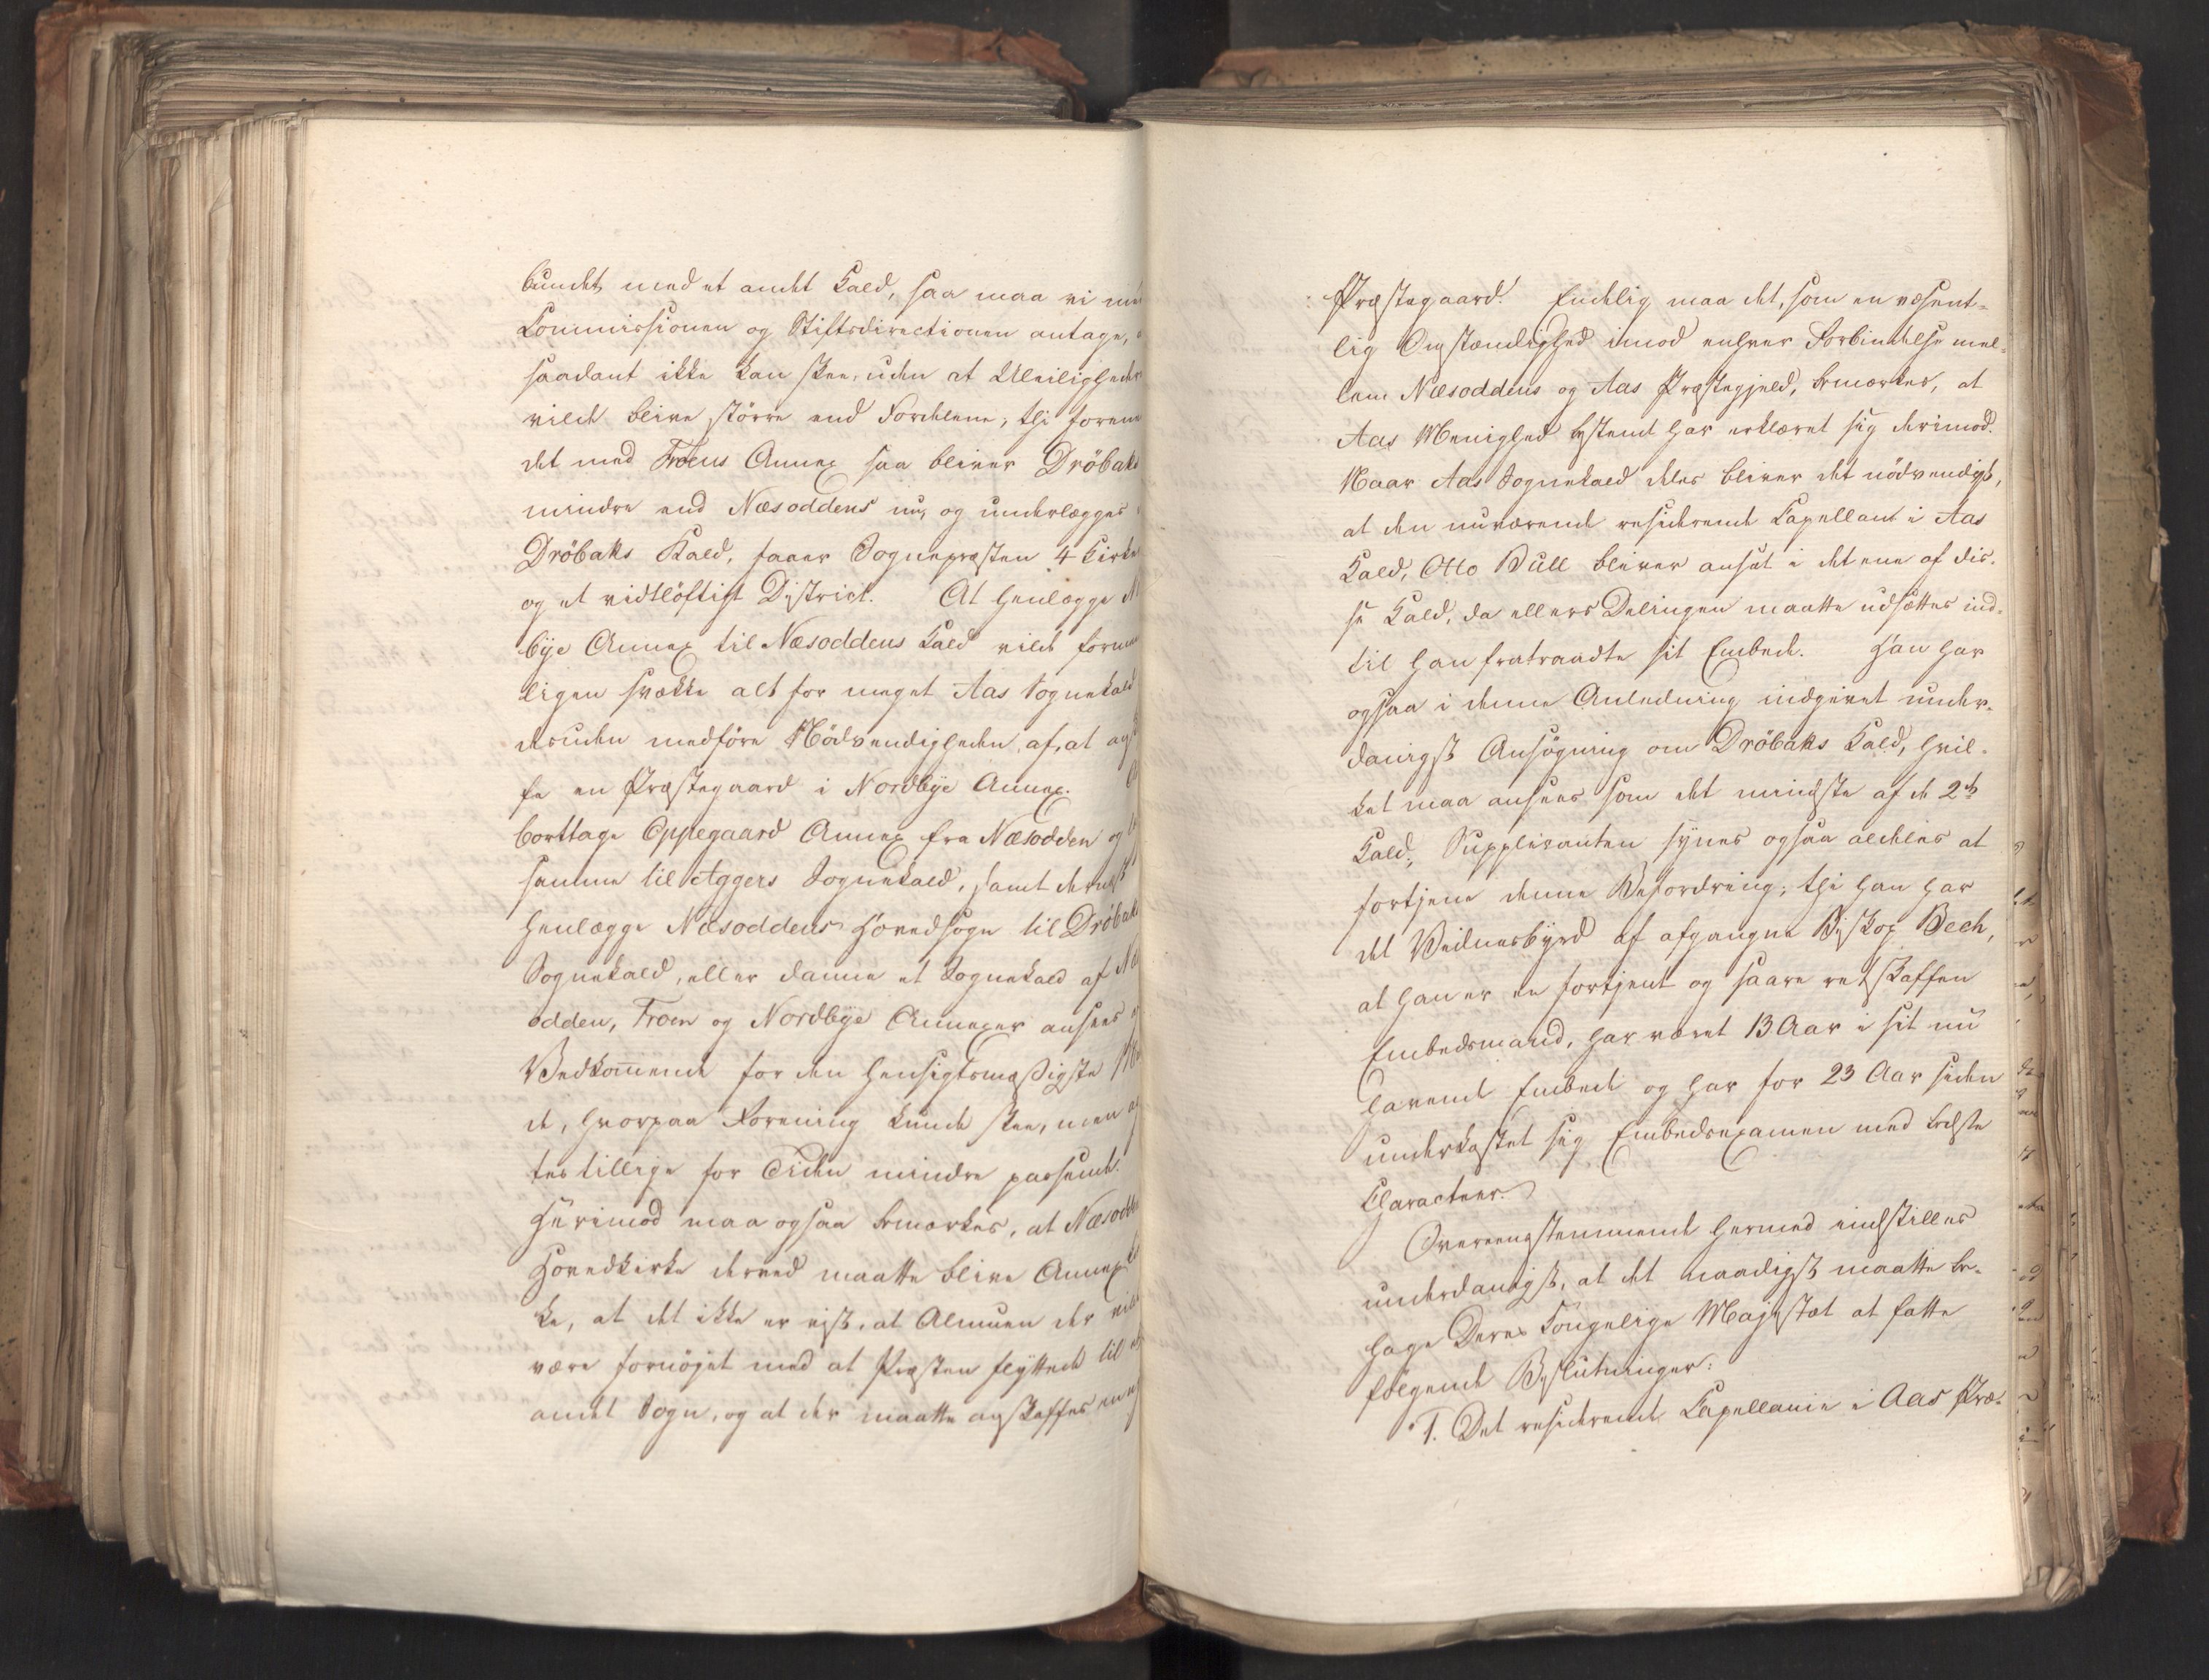 bundet med et andet Kald, saa maa vi
Commissionen og Stiftsdirectionen antage,
saadant ikke kan skee, uden at Uleiligheder
vilde blive større end Fordelene; thi forenes
det med Froens Annex saa bliver Drøbaks
mindre end Næsoddens nu, og underlægges
Drøbaks Kald, faaer Sognepræsten 4 Kirker
og et vidtløftigt District. At henlægge
bye Annex til Næsoddens Kald vilde formeent-
ligen svække alt for meget Aas Sognekald
desuden medføre Nødvendigheden af, at anskaf-
fe en Præstegaard i Nordbye Annex.
borttage Oppegaard Annex fra Næsodden og
samme til Aggers Sognekald, samt dernæst
henlægge Næsoddens Hovedsogn til Drøbaks
Sognekald, eller danne et Sognekald af Næs-
odden, Froen og Nordbye Annexer ansees
Vedkom̄ende for den hensigtsmæssigste Maa-
de, hvorpaa Forening kunde skee, men
tes tillige for Tiden mindre passende.
Herimod maa ogsaa bemærkes, at Næsoddens
Hovedkirke derved maatte blive Annexkir-
ke, at det ikke er vist, at Almuen der vilde
være fornøjet med at Præsten flyttede til et
andet Sogn, og at der maatte anskaffes en
Præstegaard. Endelig maa det, som en væsent-
lig Omstændighed imod enhver Forbindelse mel-
lem Næsoddens og Aas Præstegjeld, bemærkes, at
Aas Menighed bestemt har erklæret sig derimod.
Naar Aas Sognekald deles bliver det nødvendigt,
at den nuværende residerende Capellan i Aas
Kald, Otto Bull bliver ansat i det ene af dis-
se Kald, da ellers Delingen maatte udsættes ind-
til han fratraadte sit Embede. Han har
ogsaa i denne Anledning indgivet under-
danigst Ansøgning om Drøbaks Kald, hvil-
ket maa ansees som det mindste af de 2de
Kald; Supplicanten synes ogsaa aldeles at
fortjene denne Befordring; thi han har
det Vidnesbyrd af afgangne Biskop Bech,
at han er en fortjent og saare retskaffen
Embedsmand, har været 13 Aar i sit nu
havende Embede og har for 23 Aar siden
underkastet sig Embedsexamen med bedste
Characteer.
Overeensstemmende hermed indstilles
underdanigst, at det naadigst maatte be-
hage Deres Kongelige Majestæt at fatte
følgende Beslutninger:
1. Det residerende Capellanie i Aas Præ-